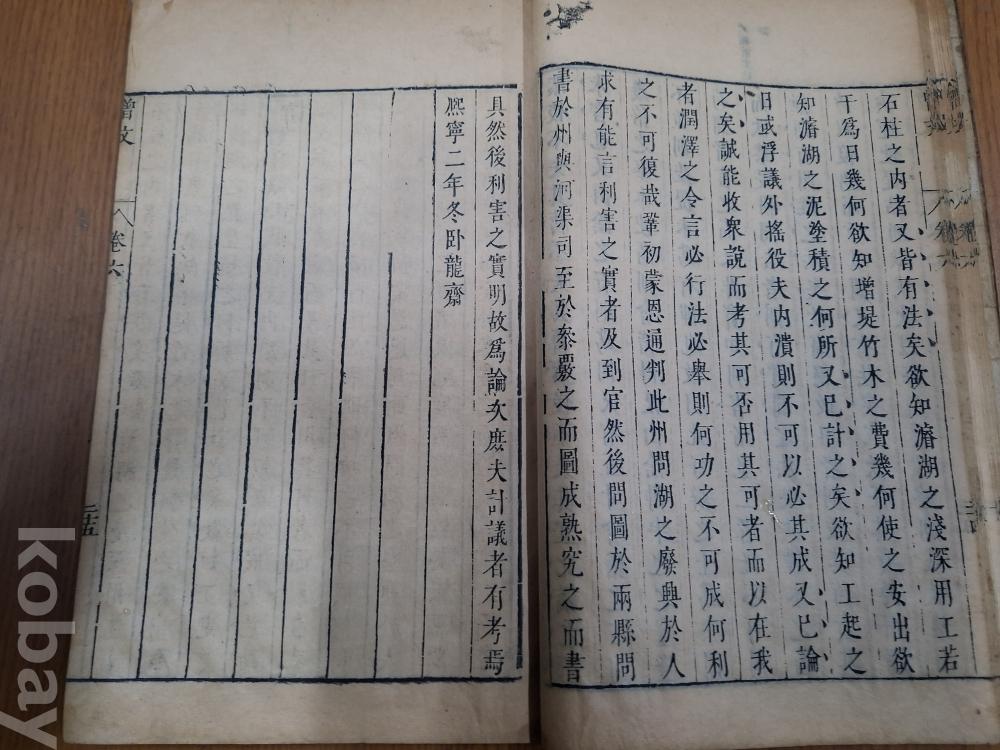 石柱之内者又皆有法矣欲知濬湖之淺深用工若
干為日幾何欲知增堤竹木之費幾何使之安出欲
知濬湖之泥塗積之何所又已計之矣欲知工起之
日或浮議外搖役夫内潰則不可以必其成又已論
之矣誠能收衆說而考其可否用其可者而以在我
者潤澤之令言必行法必舉則何功之不可成何利
之不可復哉鞏初蒙恩通判此州問湖之廢興於人
求有能言利害之實者及到官然後問圖於兩縣問
書於州與河渠司至於叅覈之而圖成熟究之而書
具然後利害之實明故爲論次庶夫計議者有考焉
熈寧二年冬卧龍齋
曾文
卷六
二十五
kobay